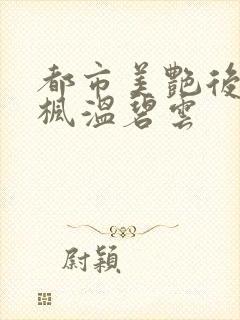 都市美艷後
楓溫碧雲
尉穎